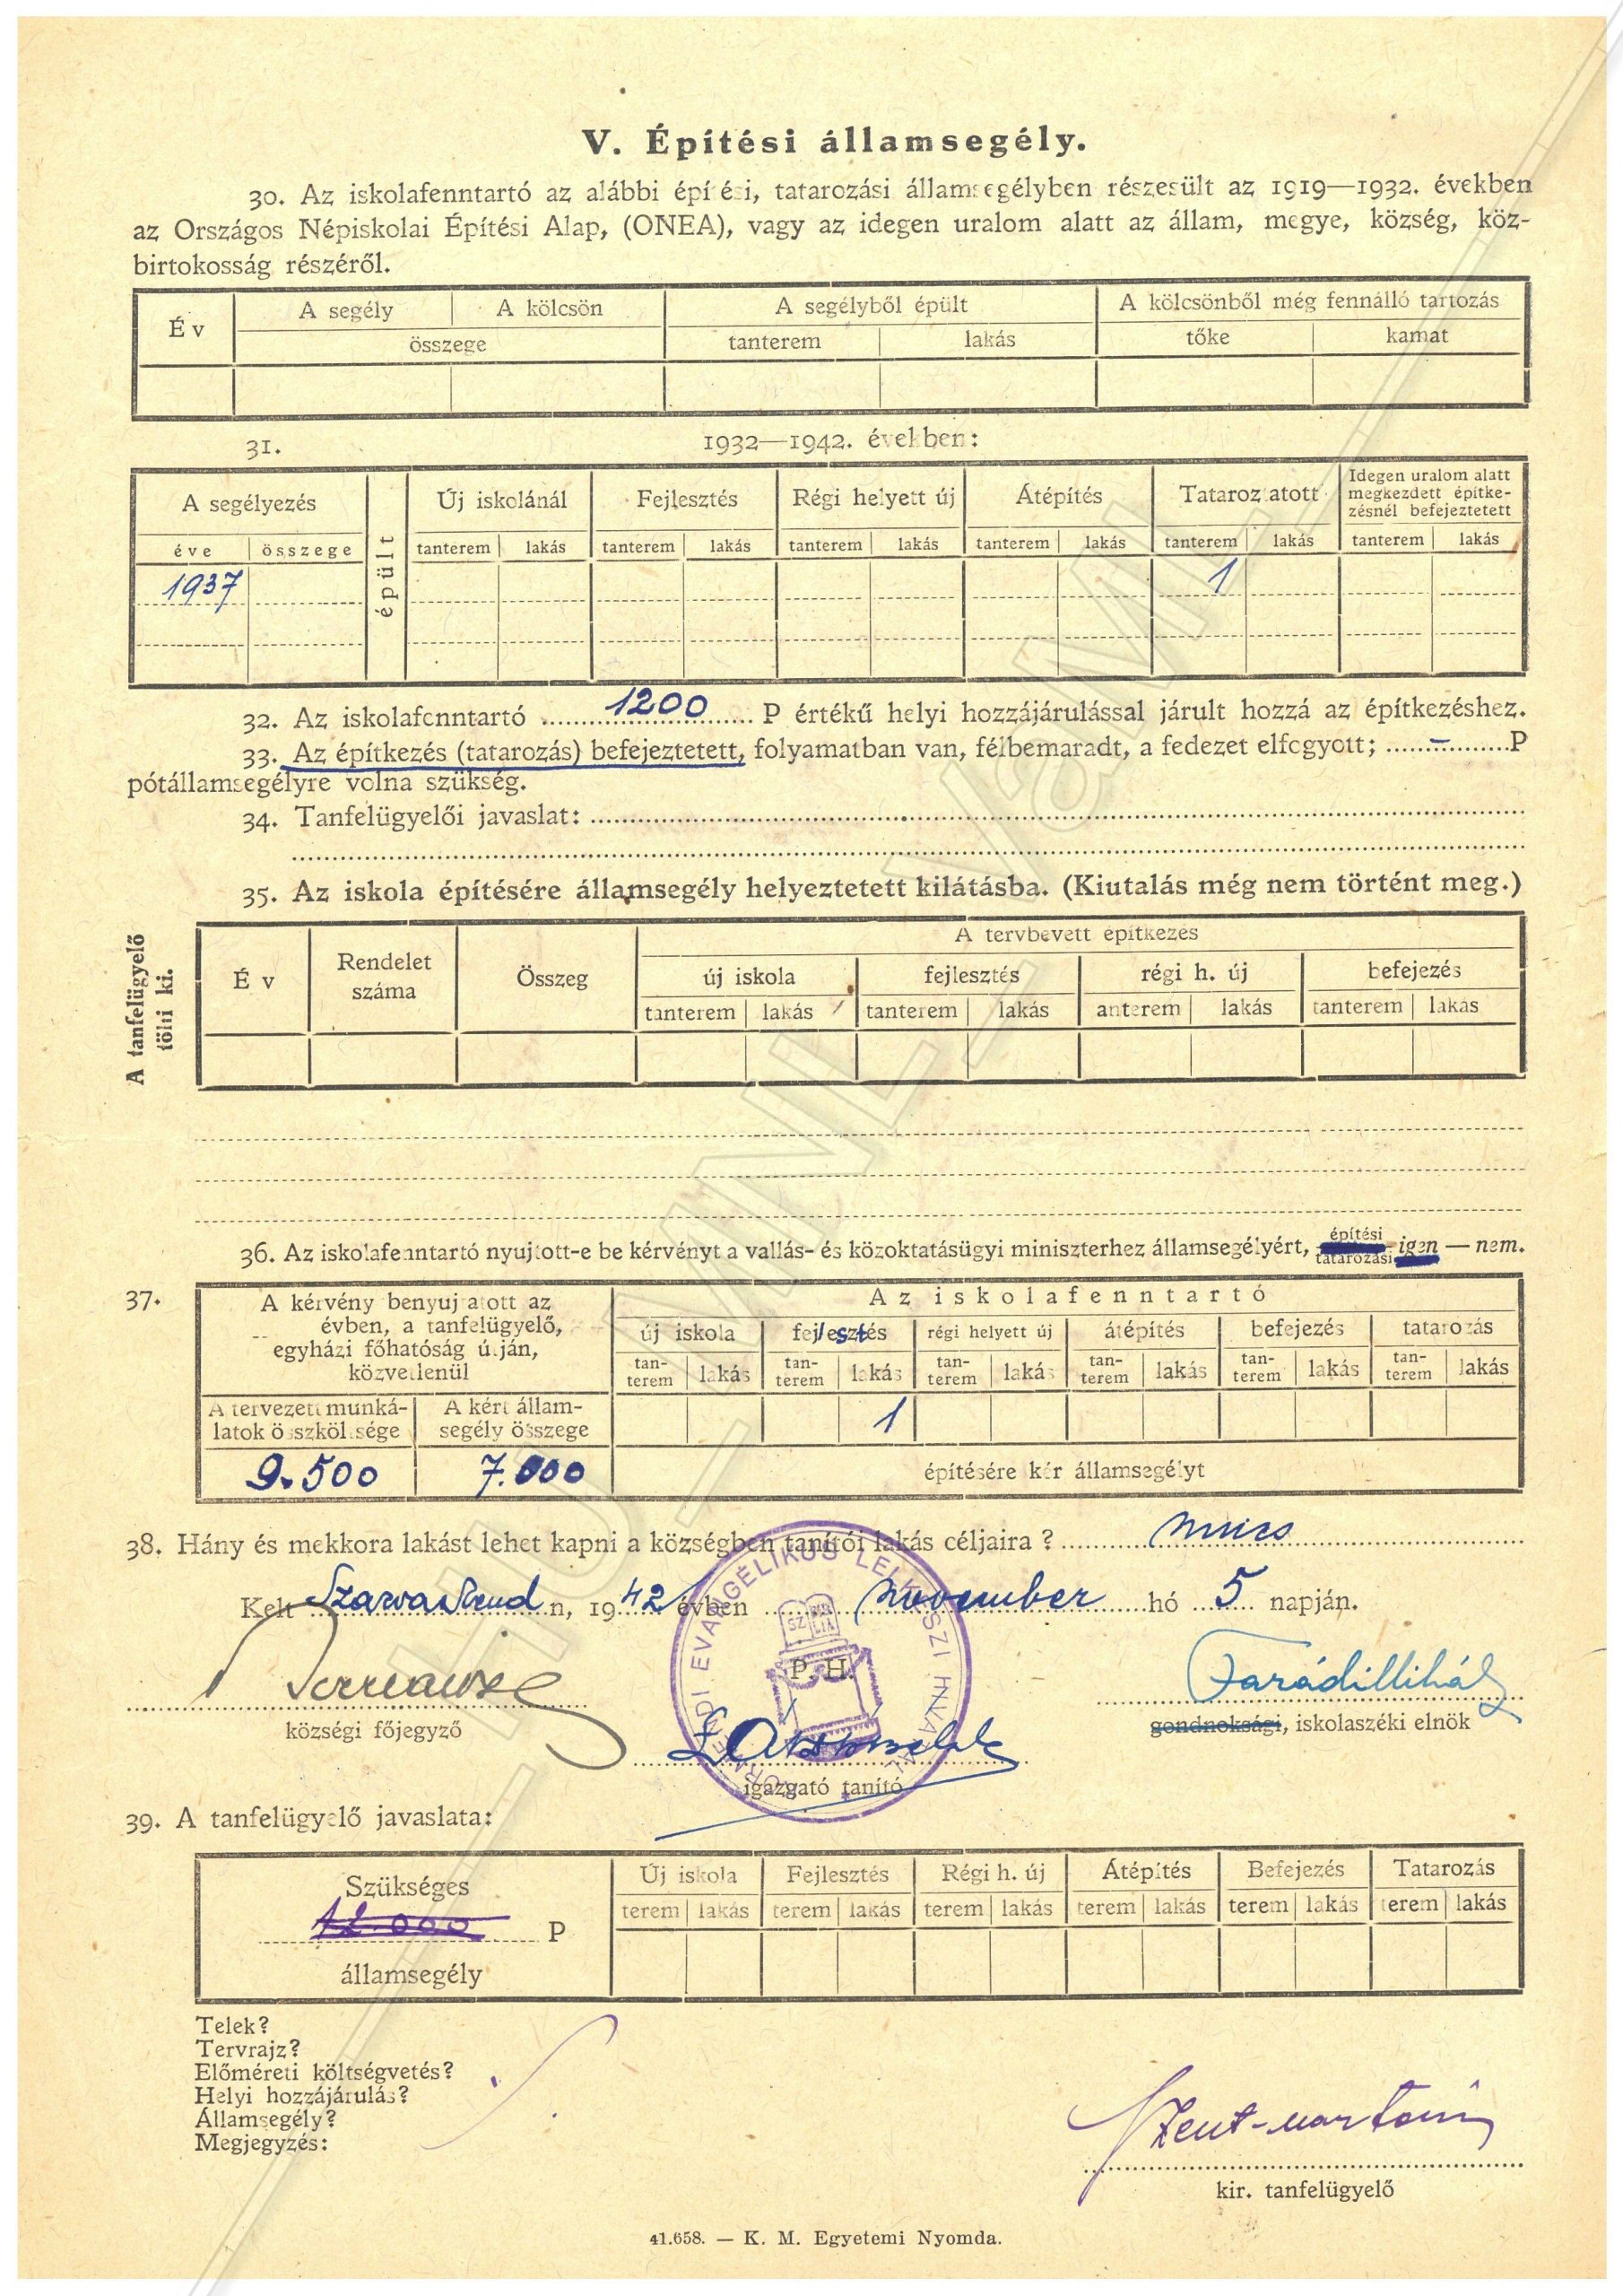 V. Építési államsegély.
30. Az iskolafenntartó az alábbi építési, tatarozási államsegélyben részesült az 1919—1932. években
az Országos Népiskolai Építési Alap, (ONEA), vagy az idegen uralom alatt az állam, megye, község, köz-
birtokosság részéről.
Év A segély A kölcsön A segélyből épült A kölcsönből még fennálló tartozás
összege tanterem lakás tőke kamat
31. 1932—1942. években:
A segélyezés épült Új iskolánál Fejlesztés Régi helyett új Átépítés Tataroztatott Idegen uralom alatt
megkezdett építke-
zésnél befejeztetett
éve összege tanterem lakás tanterem lakás tanterem lakás tanterem lakás tanterem lakás tanterem lakás
1937 1
32. Az iskolafenntartó 1200 P értékű helyi hozzájárulással járult hozzá az építkezéshez.
33. Az építkezés (tatarozás) befejeztetett, folyamatban van, félbemaradt, a fedezet elfogyott; – P
pótállamsegélyre volna szükség.
34. Tanfelügyelői javaslat:
35. Az iskola építésére államsegély helyeztetett kilátásba. (Kiutalás még nem történt meg.)
A tanfelügyelő
tölti ki.
Év Rendelet
száma Összeg A tervbevett építkezés
új iskola fejlesztés régi h. új befejezés
tanterem lakás tanterem lakás anterem lakás tanterem lakás
36. Az iskolafenntartó nyujtott-e be kérvényt a vallás- és közoktatásügyi miniszterhez államsegélyért, építési
tatarozási igen — nem.
37. A kérvény benyujtatott az
évben, a tanfelügyelő,
egyházi főhatóság útján,
közvetlenül
Az iskolafenntartó
új iskola fejlesztés régi helyett új átépítés befejezés tatarozás
tan-
terem lakás tan-
terem lakás tan-
terem lakás tan-
terem lakás tan-
terem lakás tan-
terem lakás
A tervezett munká-
latok összköltsége A kért állam-
segély összege 1
9.500 7.000 építésére kér államsegélyt
38. Hány és mekkora lakást lehet kapni a községben tanítói lakás céljaira? nincs
Kelt Szarvaskend n, 1942 évben november hó 5 napján.
EVANGÉLIKUS LELKÉSZI HIVATAL
SZ BIB
LIA
P. H.
Farádi Mihály
községi főjegyző
gondnoksági, iskolaszéki elnök
igazgató tanító
39. A tanfelügyelő javaslata:
Szükséges
12.000 P
államsegély
Új iskola Fejlesztés Régi h. új Átépítés Befejezés Tatarozás
terem lakás terem lakás terem lakás terem lakás terem lakás terem lakás
Telek?
Tervrajz?
Előméreti költségvetés?
Helyi hozzájárulás?
Államsegély?
Megjegyzés:
Szent-mártoni
kir. tanfelügyelő
41.658. — K. M. Egyetemi Nyomda.
HU_MNL_VaML